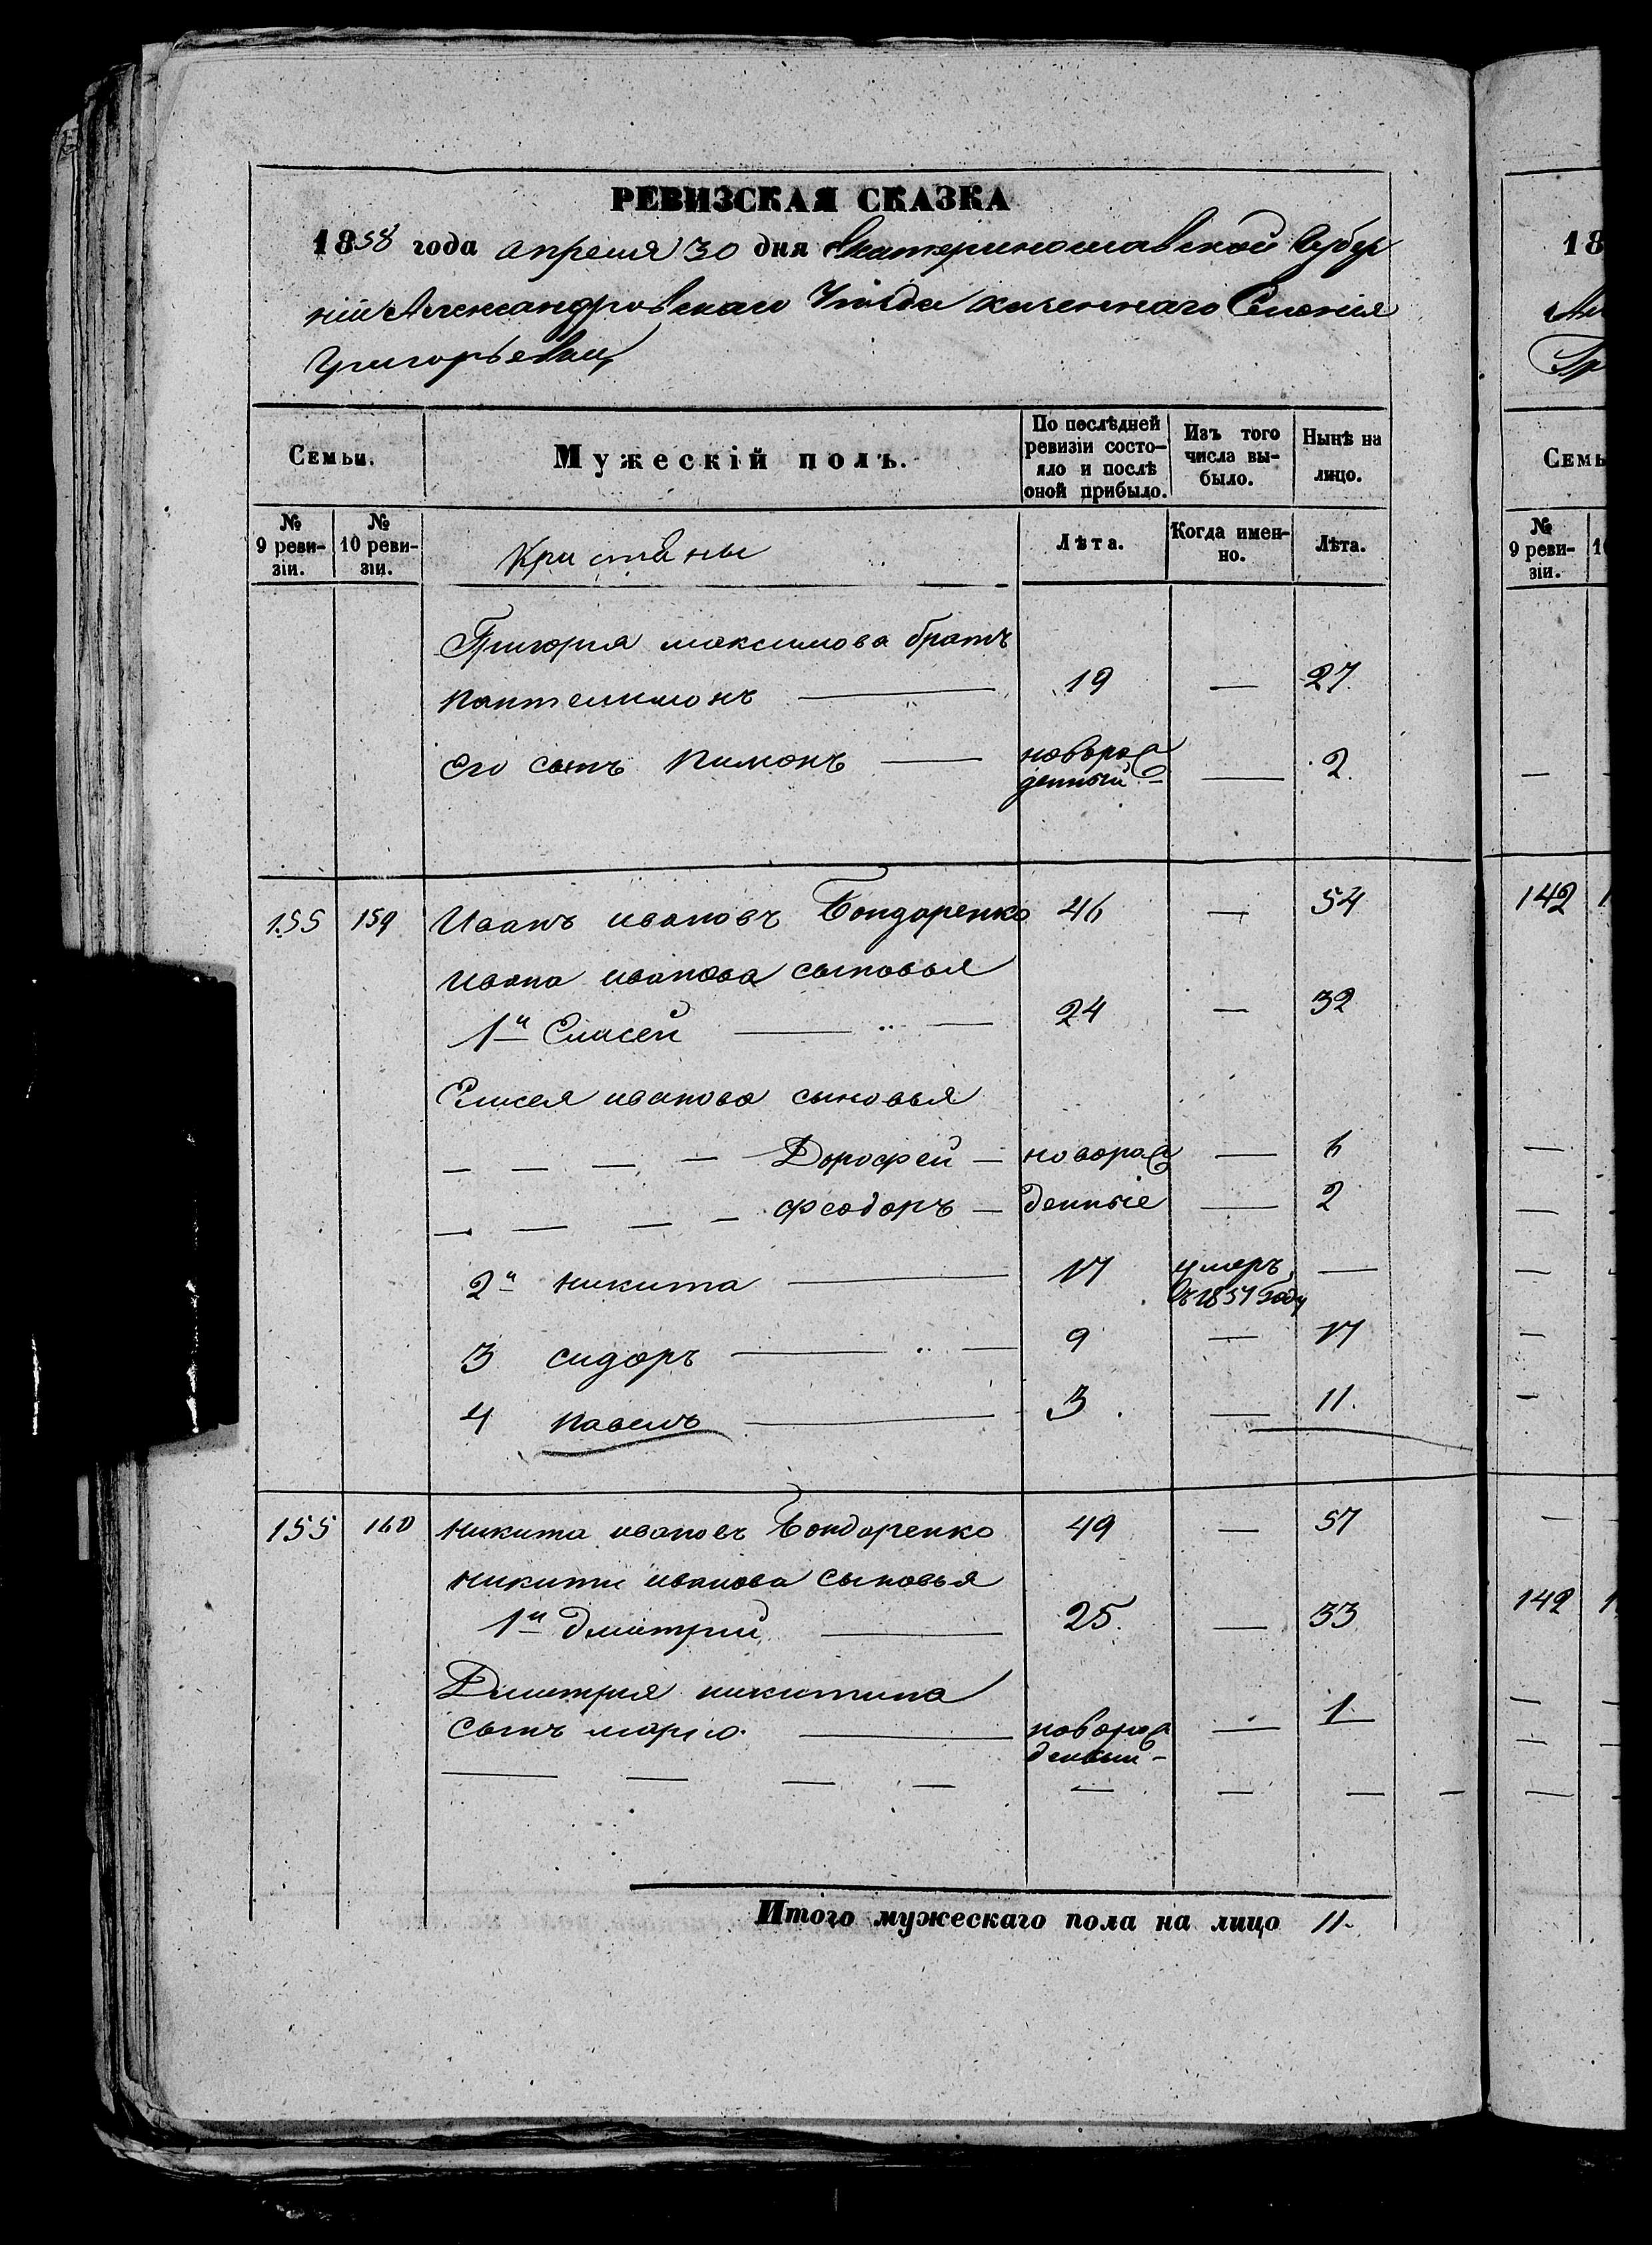 РЕВИЗСКАЯ СКАЗКА
1858 года апреля 30 дня Екатеринославской Губер
ніи Александровскаго Уѣзда казеннаго Селенія
Григорьевки
Семьи.
Мужескій полъ.
По послѣдней ревизіи состояло и послѣ оной прибыло.
Изъ того числа выбыло.
Нынѣ на лицо.
№ 9 ревизіи.
№ 10 ревизіи.
Кристяны
Лѣта.
Когда именно.
Лѣта.
Григорія максимова братъ
пантелимонъ — 19 — 27.
Его сынъ Пимонъ — новорож
денный — 2.
155 159 Иванъ ивановъ Бондаренко 46 — 54
Ивана иванова сыновья
1й Елисей — 24 — 32
Елисея иванова сыновья
— — — — Дорофей — новорож — 6
— — — — феодоръ — денные — 2
2й никита — 17 умеръ —
въ 1857 году
3 сидоръ — 9 — 17
4 павелъ — 3. — 11.
155 160 никита ивановъ Бондаренко 49 — 57
никиты иванова сыновья
1й Дмитрий — 25. — 33
Дмитрия никитина
сынъ марко. — новорож — 1
денный —
Итого мужескаго пола на лицо 11.
18
Ал
Гр
Семь
№ 9 ревизіи.
1
142 1
142 1